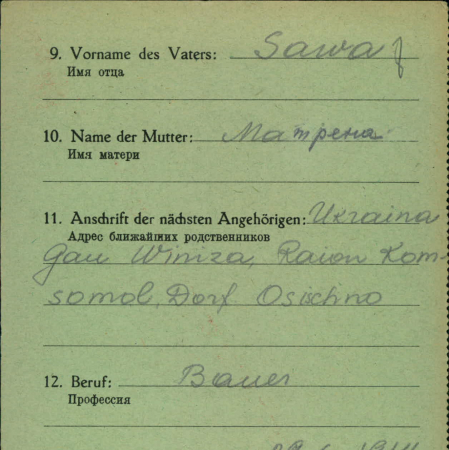 9. Vorname des Vaters: Sawa
Имя отца
10. Name der Mutter: Матрена
Имя матери
11. Anschrift der nächsten Angehörigen: Ukraina
Адрес ближайших родственников
Gau Winiza, Raion Kom-
somol, Dorf Osischno
12. Beruf: Bauer
Профессия